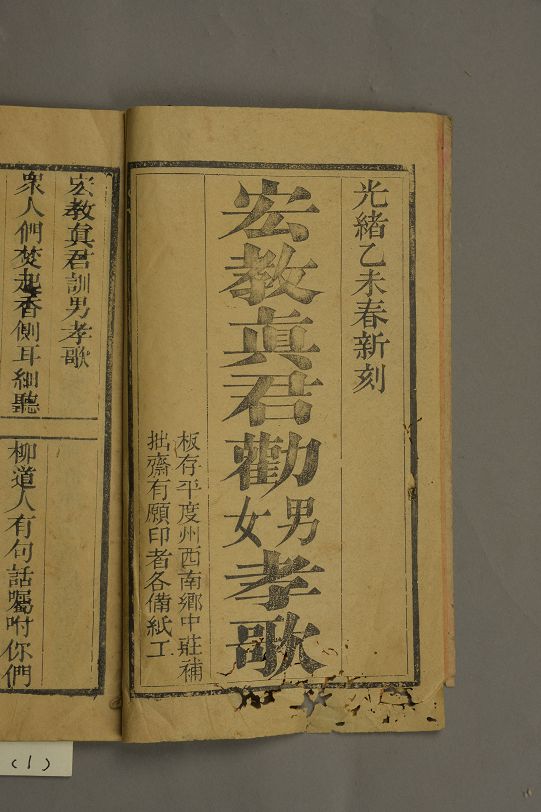 光緒乙未春新刻
宏教真君勸男女孝歌
板存平度州西南鄉中莊補
拙齋有願印者各備紙工
宏教真君訓男孝歌
衆人們焚起香側耳細聽
柳道人有句話囑咐你們
(1)